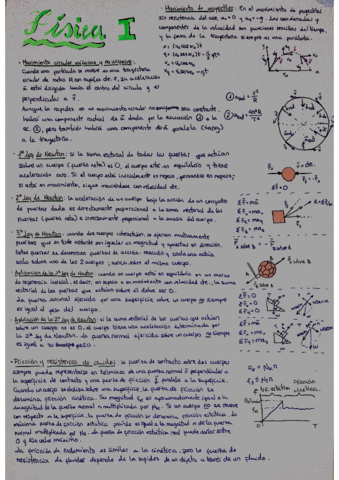 Física I
• Movimiento de proyectiles: En el movimiento de proyectiles
sin resistencia del aire, ax = 0 y ay = -g. Las coordenadas y
componentes de la velocidad son funciones sencillas del tiempo,
y la forma de la trayectoria siempre es una parábola.
• Movimiento circular uniforme y no uniforme:
Cuando una partícula se mueve en una trayectoria
circular de radio R con rapidez cte. v, su aceleración
a está dirigida hacia el centro del círculo y es
perpendicular a v.
Aunque la rapidez en un movimiento circular no sea cte,
habrá una componente radial de a dada por la ecuación
pero también habrá una componente de a paralela
a la trayectoria.
• 1ª ley de Newton: si la suma vectorial de todas las fuerzas que actúan
sobre un cuerpo (fuerza neta) es 0, el cuerpo está en equilibrio y tiene
aceleración cero. Si el cuerpo está inicialmente en reposo, permanece en reposo;
si está en movimiento, sigue moviéndose con velocidad cte.
ΣF=0
• 2ª ley de Newton: la aceleración de un cuerpo bajo la acción de un conjunto
de fuerzas dado es directamente proporcional a la suma vectorial de las
fuerzas (fuerza neta) e inversamente proporcional a la masa del cuerpo.
• 3ª ley de Newton: cuando dos cuerpos interactúan, se ejercen mutuamente
fuerzas que en todo instante son iguales en magnitud y opuestas en dirección.
Estas fuerzas se denominan fuerzas de acción-reacción y cada una actúa
sólo sobre uno de los 2 cuerpos, nunca sobre el mismo cuerpo.
• Aplicación de la 1ª ley de Newton: cuando un cuerpo está en equilibrio en un marco
de referencia inercial, es decir, en reposo o en movimiento con velocidad cte, la suma
vectorial de las fuerzas que actúan sobre él debe ser 0.
La fuerza normal ejercida por una superficie sobre un cuerpo no siempre
es igual al peso del cuerpo.
• Aplicación de la 2ª ley de Newton: si la suma vectorial de las fuerzas que actúan
sobre un cuerpo no es 0, el cuerpo tiene una aceleración determinada por
la 2ª ley de Newton. La fuerza normal ejercida sobre un cuerpo no siempre
es igual a su peso.
• Fricción y resistencia de fluidos: la fuerza de contacto entre dos cuerpos
siempre puede representarse en términos de una fuerza normal n perpendicular a
la superficie de contacto y una fuerza de fricción f paralela a la superficie.
Cuando un cuerpo se desliza sobre una superficie, la fuerza de fricción se
denomina fricción cinética. Su magnitud fk es aproximadamente igual a la
magnitud de la fuerza normal n multiplicada por μk. Si un cuerpo no se mueve
con respecto a la superficie, la fuerza de fricción se denomina fricción estática. La
máxima fuerza de fricción estática posible es igual a la magnitud n de la fuerza
normal multiplicada por μs. La fuerza de fricción estática real puede estar entre
0 y ese valor máximo.
La fricción de rodamiento es similar a la cinética, pero la fuerza de
resistencia de fluidos depende de la rapidez de un objeto a través de un fluido.
fk = μk n